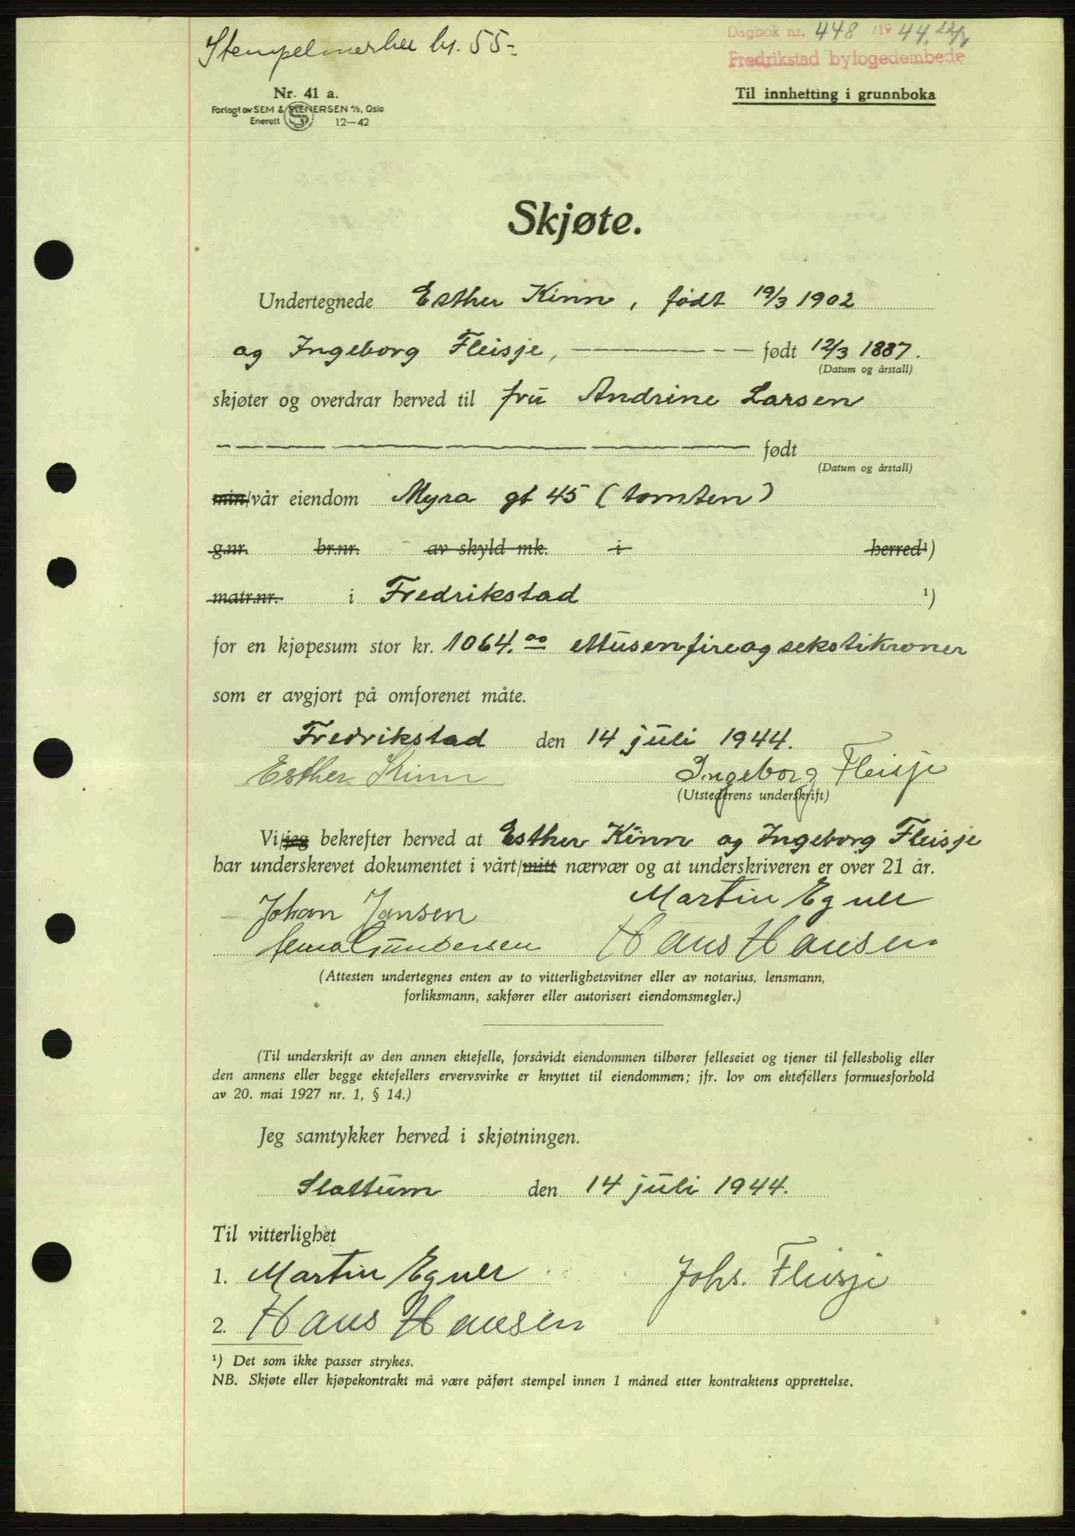 Stempelmerker kr. 55.-
Dagbok nr. 448 19 44
Fredrikstad byfogedembede
Nr. 41 a.
Forlagt av SEM & STENERSEN A/S, Oslo
Enerett 12—42
Til innhefting i grunnboka
Skjøte.
Undertegnede Esther Kinn, født 19/3 1902
og Ingeborg Fleisje, født 12/3 1887.
(Datum og årstall)
skjøter og overdrar herved til fru Andrine Larsen
født
(Datum og årstall)
min/vår eiendom Myra gt 45 (tomten)
g.nr. br.nr. av skyld mk. i herred ¹)
matr.nr. i Fredrikstad ¹)
for en kjøpesum stor kr. 1064.00 ettusenfireogsekstikroner
som er avgjort på omforenet måte.
Fredrikstad den 14 juli 1944.
Esther Kinn Ingeborg Fleisje
(Utstederens underskrift)
Vi/jeg bekrefter herved at Esther Kinn og Ingeborg Fleisje
har underskrevet dokumentet i vårt/mitt nærvær og at underskriveren er over 21 år.
Johan Jansen Martin Egner
Gundersen Hans Hansen
(Attesten undertegnes enten av to vitterlighetsvitner eller av notarius, lensmann,
forliksmann, sakfører eller autorisert eiendomsmegler.)
(Til underskrift av den annen ektefelle, forsåvidt eiendommen tilhører felleseiet og tjener til fellesbolig eller
den annens eller begge ektefellers ervervsvirke er knyttet til eiendommen; jfr. lov om ektefellers formuesforhold
av 20. mai 1927 nr. 1, § 14.)
Jeg samtykker herved i skjøtningen.
Slattum den 14 juli 1944.
Til vitterlighet
1. Martin Egner Johs. Fleisje
2. Hans Hansen
¹) Det som ikke passer strykes.
NB. Skjøte eller kjøpekontrakt må være påført stempel innen 1 måned etter kontraktens opprettelse.